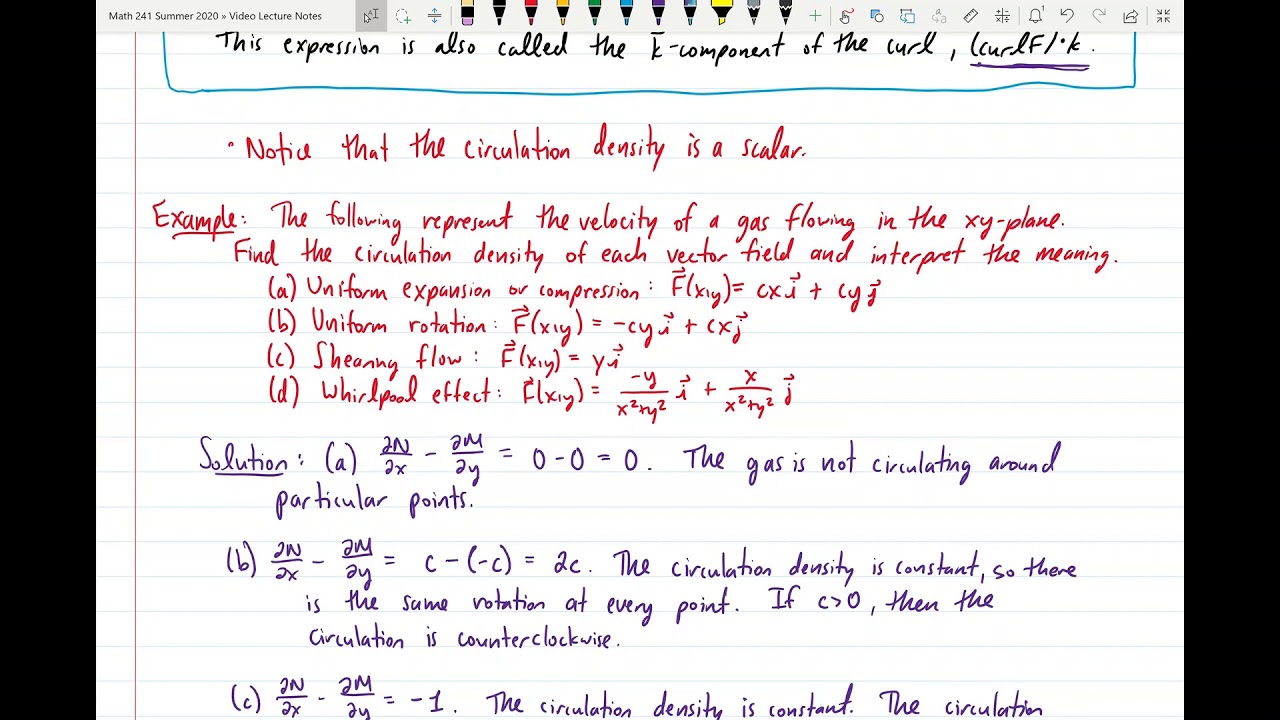 Math 241 Summer 2020 » Video Lecture Notes
This expression is also called the k-component of the curl, (curl F)·k.
· Notice that the circulation density is a scalar.
Example: The following represent the velocity of a gas flowing in the xy-plane.
Find the circulation density of each vector field and interpret the meaning.
(a) Uniform expansion or compression: F⃗(x,y) = cx i⃗ + cy j⃗
(b) Uniform rotation: F⃗(x,y) = -cy i⃗ + cx j⃗
(c) Shearing flow: F⃗(x,y) = y i⃗
(d) Whirlpool effect: F⃗(x,y) = -y/(x²+y²) i⃗ + x/(x²+y²) j⃗
Solution: (a) ∂N/∂x - ∂M/∂y = 0 - 0 = 0. The gas is not circulating around
particular points.
(b) ∂N/∂x - ∂M/∂y = c - (-c) = 2c. The circulation density is constant, so there
is the same rotation at every point. If c>0, then the
circulation is counterclockwise.
(c) ∂N/∂x - ∂M/∂y = -1. The circulation density is constant. The circulation